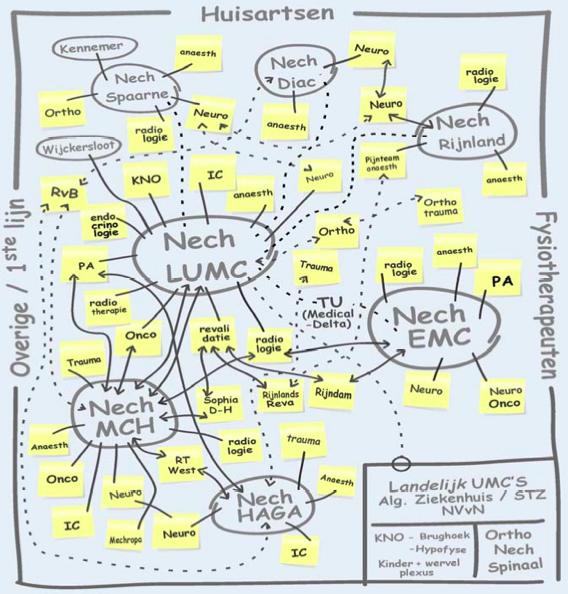 Huisartsen
Kennemer
anaesth
Nech
Spaarne
Ortho
radio
logie
Neuro
Nech
Diac
anaesth
Neuro
Neuro
radio
logie
Nech
Rijnland
Pijnteam
anaesth
anaesth
Wijckersloot
RvB
KNO
IC
anaesth
Neuro
Ortho
trauma
endo
crino
logie
Nech
LUMC
Ortho
Trauma
PA
radio
therapie
Onco
revali
datie
radio
logie
TU
(Medical
-Delta)
radio
logie
anaesth
PA
Nech
EMC
Neuro
Neuro
Onco
Trauma
Nech
MCH
Sophia
D-H
Rijnlands
Reva
Rijndam
Anaesth
Onco
IC
Neuro
Mechropa
RT
West
radio
logie
Neuro
trauma
Anaesth
Nech
HAGA
IC
Overige / 1ste lijn
Fysiotherapeuten
Landelijk UMC'S
Alg. Ziekenhuis / STZ
NVvN
KNO - Brughoek
-Hypofyse
Kinder + wervel
plexus
Ortho
Nech
Spinaal